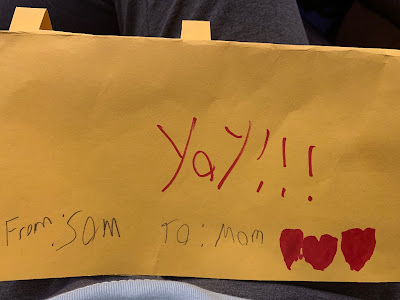 YaY!!!
From: Sam To: Mom